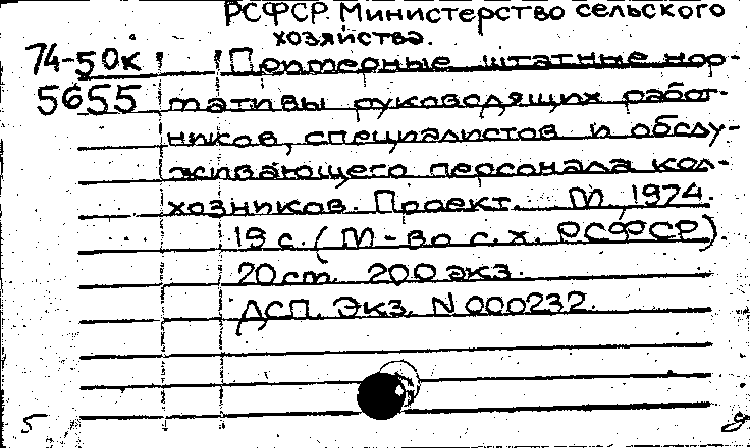 РСФСР. Министерство сельского
хозяйства.
74-50к Примерные штатные нор-
5655 мативы руководящих работ-
ников, специалистов и обслу-
живающего персонала кол-
хозников. Проект. М, 1974.
19 с. (М-во с.х. РСФСР).
20 см. 200 экз.
ДСП. Экз. N 000232.
5